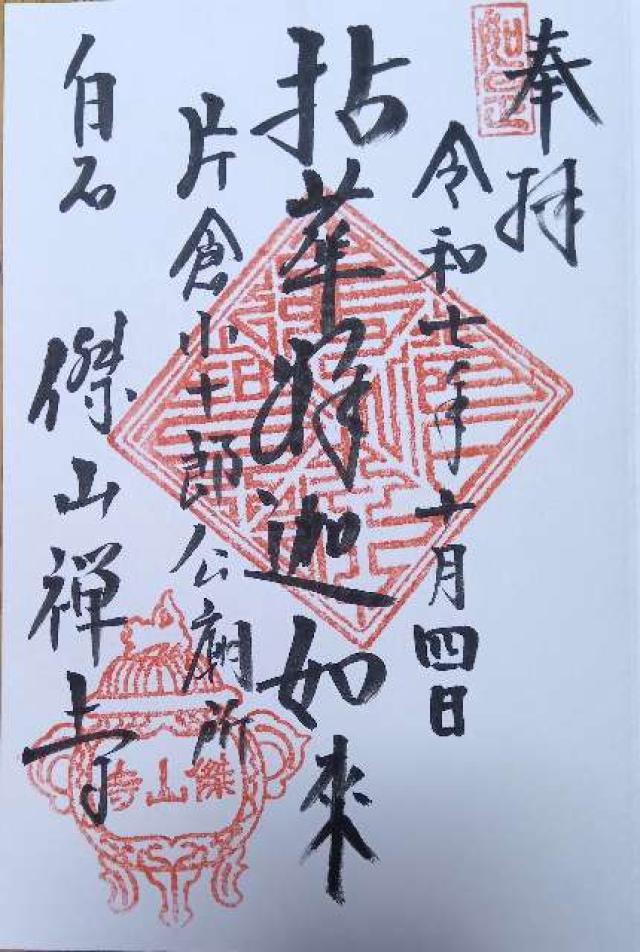 奉拝
令和七年十月四日
拈華釈迦如來
片倉小十郎公廟所
白石
傑山禅寺
傑山寺